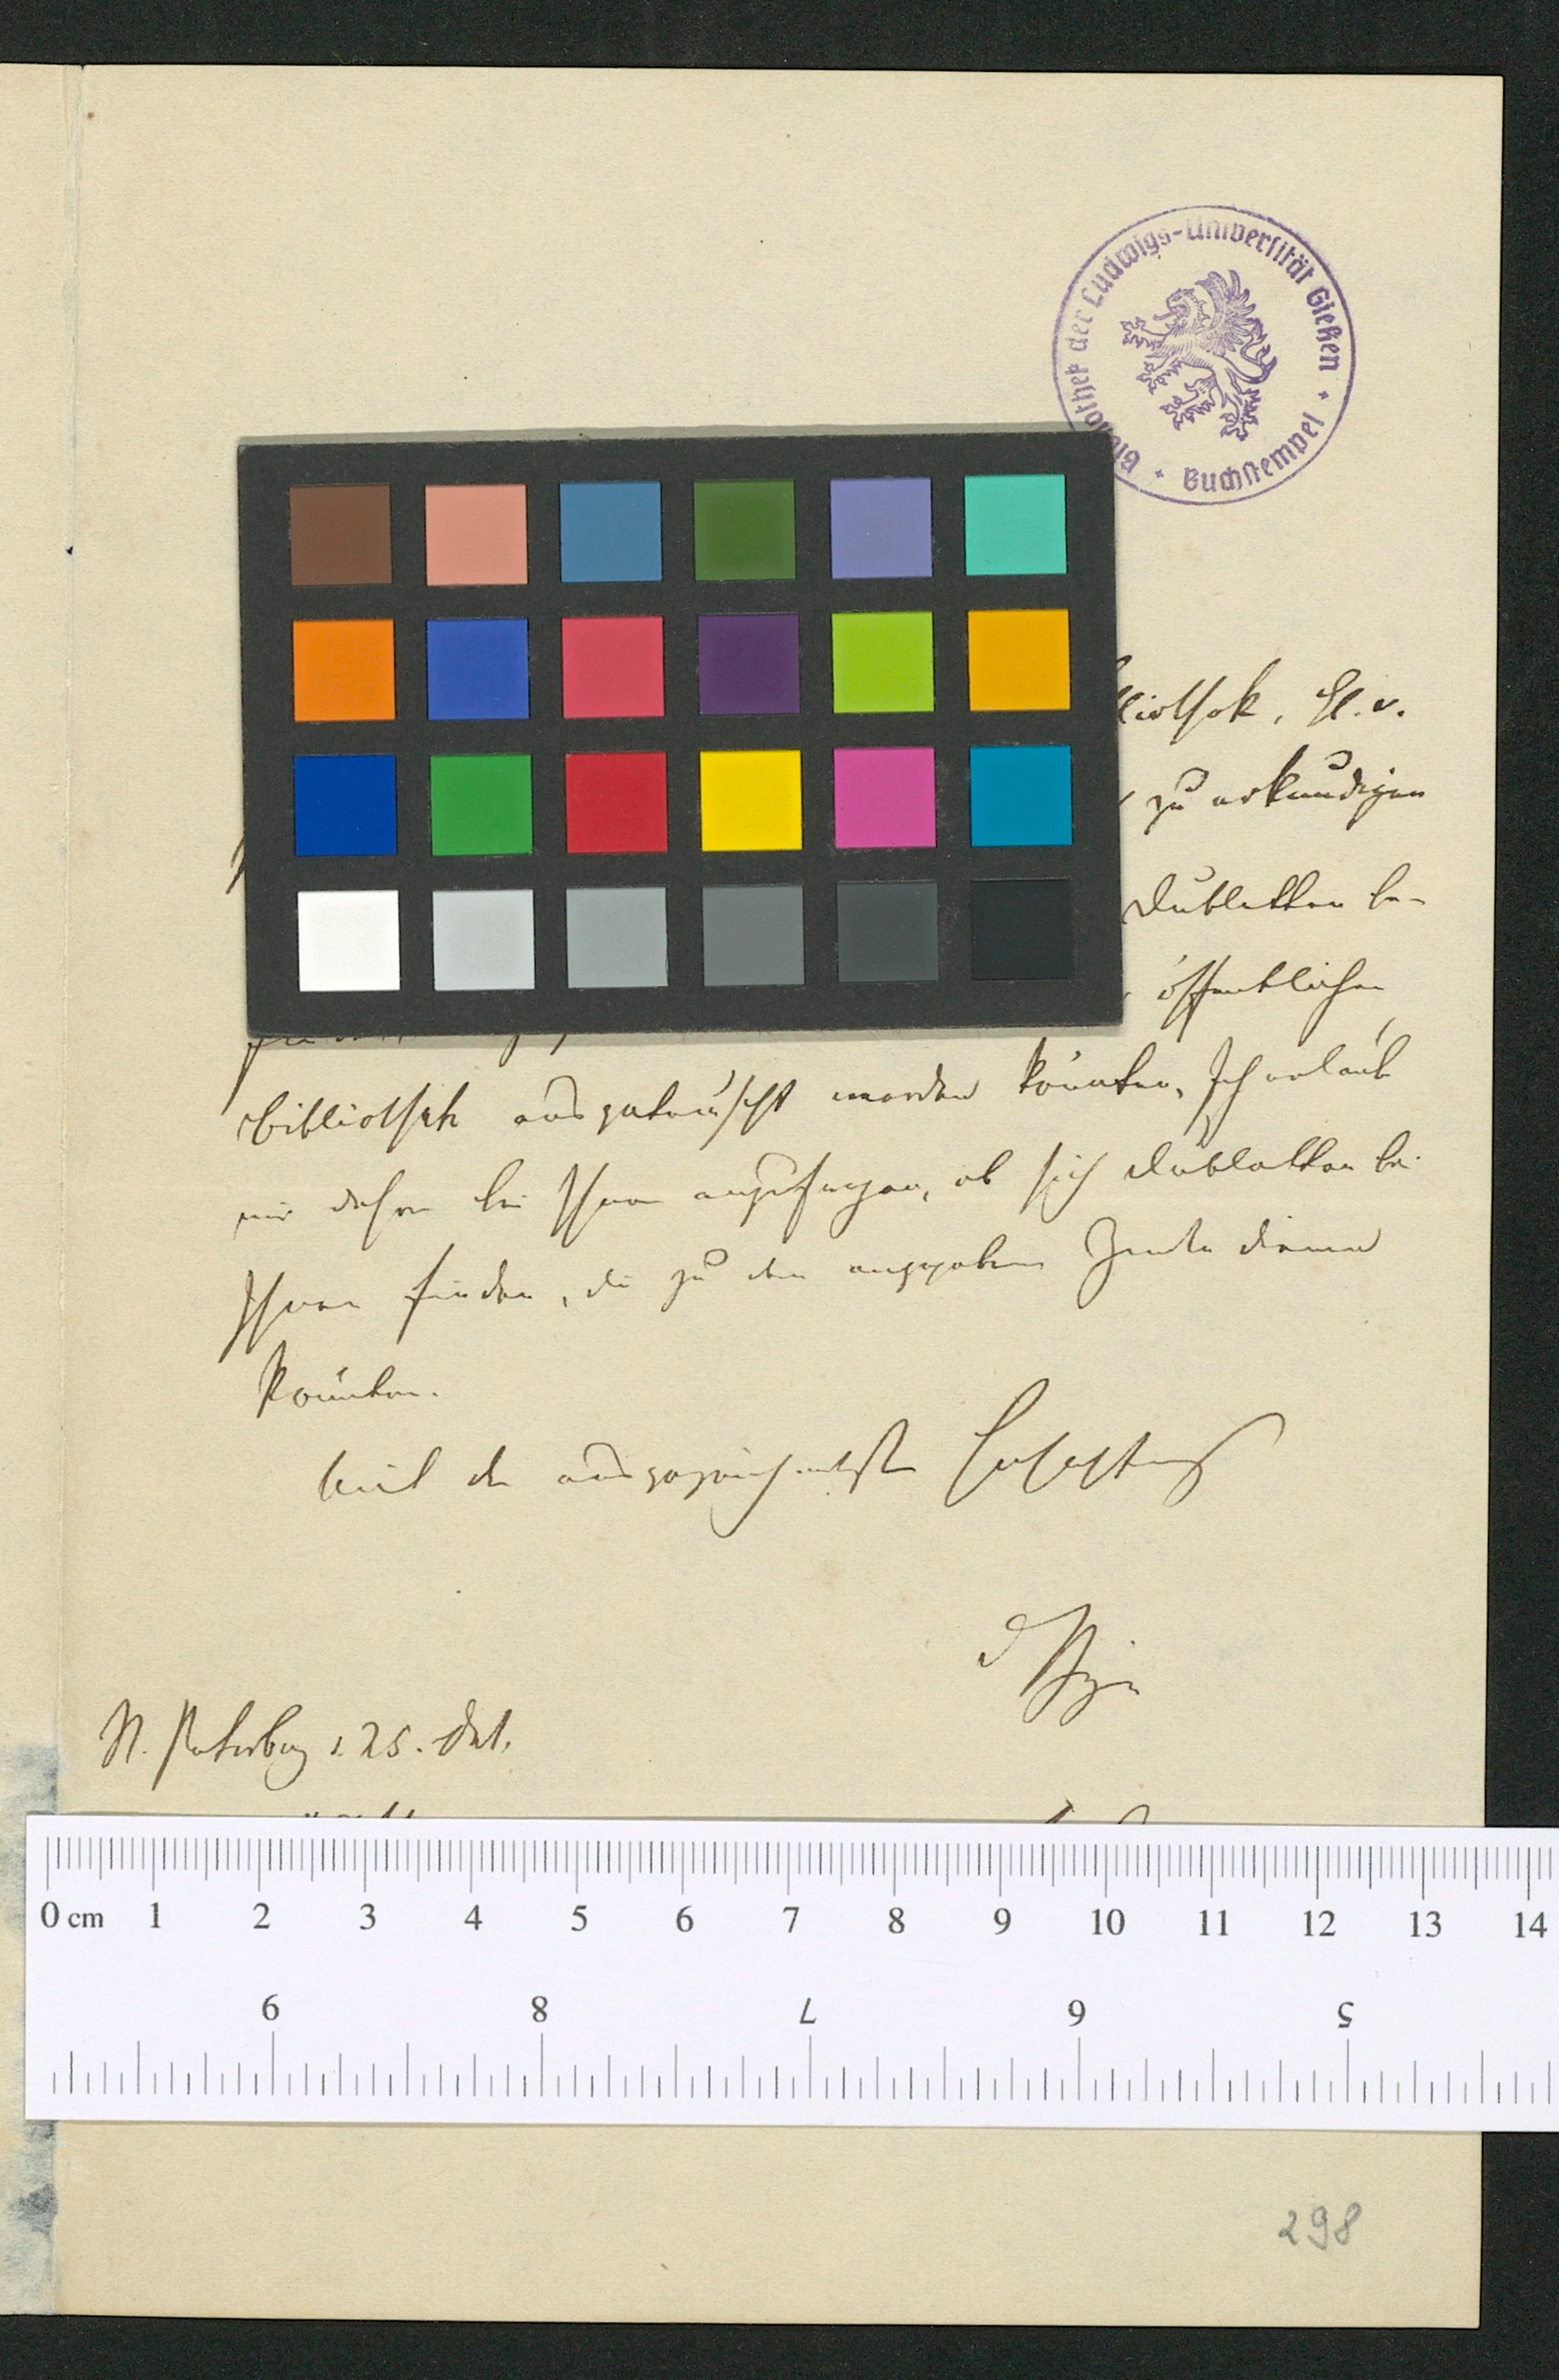 Bibliothek der Ludwigs-Universität Gießen
Buchstempel
zu erkundigen
Dubletten be-
öffentlichen
Bibliothek ausgetauscht werden könnten. Ich erlaube
mir daher bei Ihnen anzufragen, ob sich Dubletten bei
Ihnen finden, die zu dem angegebenen Zwecke dienen
könnten.
Mit der ausgezeichnetsten Hochachtung
St. Petersburg d. 25. Oct.
0 cm 1 2 3 4 5 6 7 8 9 10 11 12 13 14
9 8 7 6 5
298